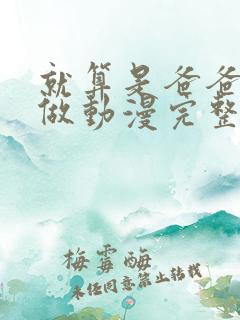 就算是爸爸
做動漫完整
梅霉酶
未经同意禁止转载